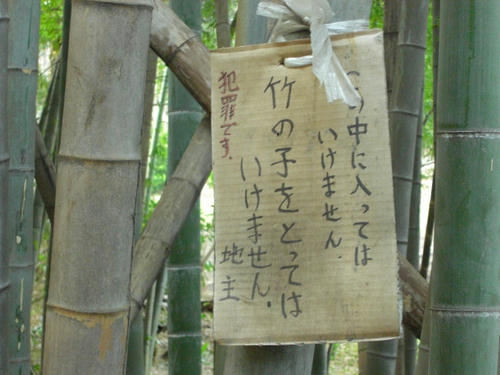 の中に入っては
いけません。
竹の子をとっては
いけません。
地主
犯罪です。